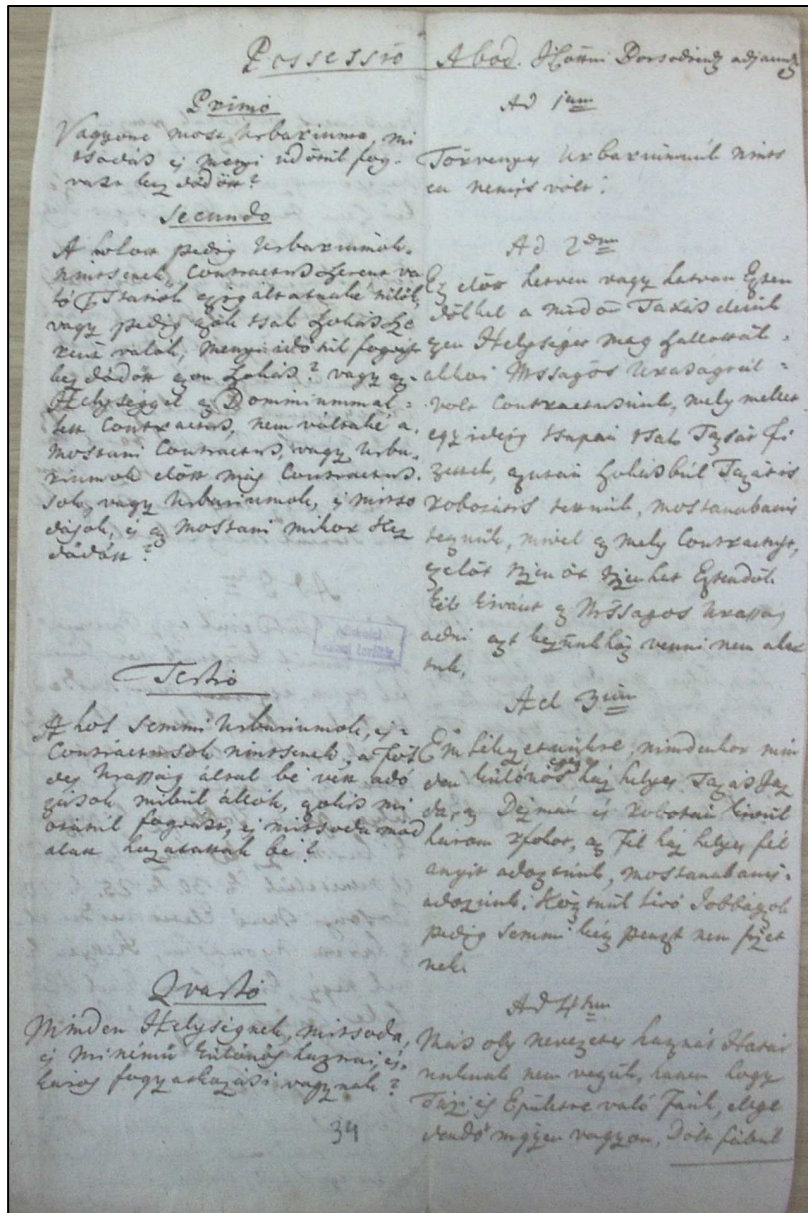 Possessio Abod.
Primo
Vagyone most Urbariuma, mi
tsodás és menyi üdötül fog-
va kezdödött?
Secundo
A holott pedig Urbariumok
nintsenek, Contractus szerent va
ló
vagy pedig azok tsak szokás sze
rént valók, menyi idötül fogvást
kezdödött azon szokás? vagy az
Helységgel az Dominiummal
lett Contractus, nem vóltaké a
mostani Contractus, vagy Urba-
riumok elött más Contractus
sok, vagy Urbariumok, és mitso
dások, és az mostani mikor kez
dödött?
Tertio
A hol semmi Urbariumok, és
Contractusok nintsenek, a Föl
des Uraság által bé vett adó
zások mibül állók,
fogvást, és mitsoda mód
alatt hozatattak bé?
Qvarto
Minden Helységnek, mitsoda,
és minémű külömös haznai, és
káros fogyatkozási vagynak?
34
Ad 1um
Törvenyes Urbariumunk nints
en nemis vólt.
Ad 2dum
Ez elött hetven vagy hatvan Eszten
dökkel a midön
ezen Helységet meg szállották
Uraságtúl
volt Contractusunk, mely mellett
egy ideig tsupán tsak Taxát fi
zettek, azután szokásbúl Taxátis
robotátis tettünk, mostanábanis
teszünk, mivel az mely Contractust,
ezelöt tizen öt tizenhat Esztendök
kivánt az Uraság
adni azt kezünkhöz venni nem akar
tuk.
Ad 3um
Emlékezetünkre, mindenkor min
den külömös egész ház helyes Gaz
da, az Dézmán és robotán kivül
három xforint, az Fél ház helyes fél
anyit adoztunk, mostanábanis
adozunk. Köztünk lévö Jobbágyok
pedig semmi kész penzt nem fizet
nek.
Ad 4tum
Más oly nevezetes haznát Határ
unknak nem vesszük, hanem hogy
Tüzi és Epületre való Fánk, elege
dendö ingyen vagyon, Dölt fábúl